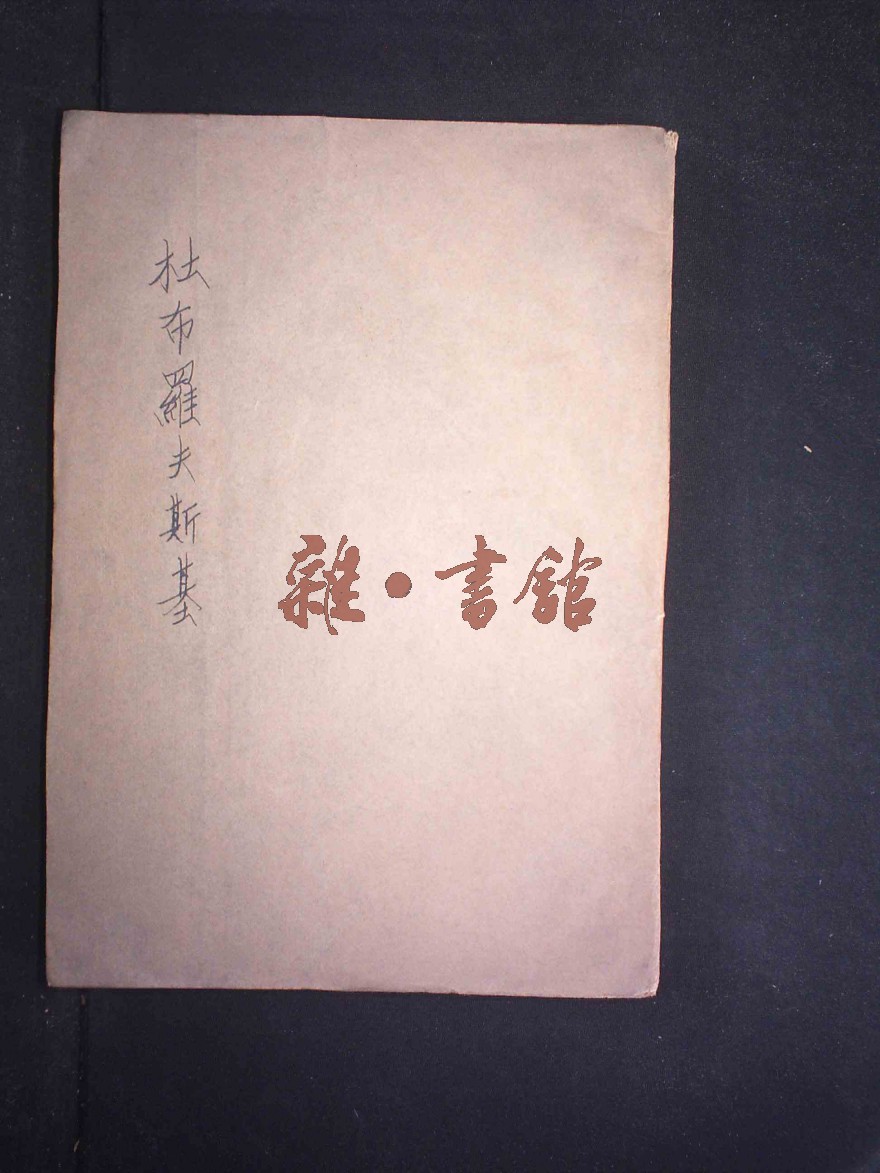 杜布羅夫斯基
雜·書館